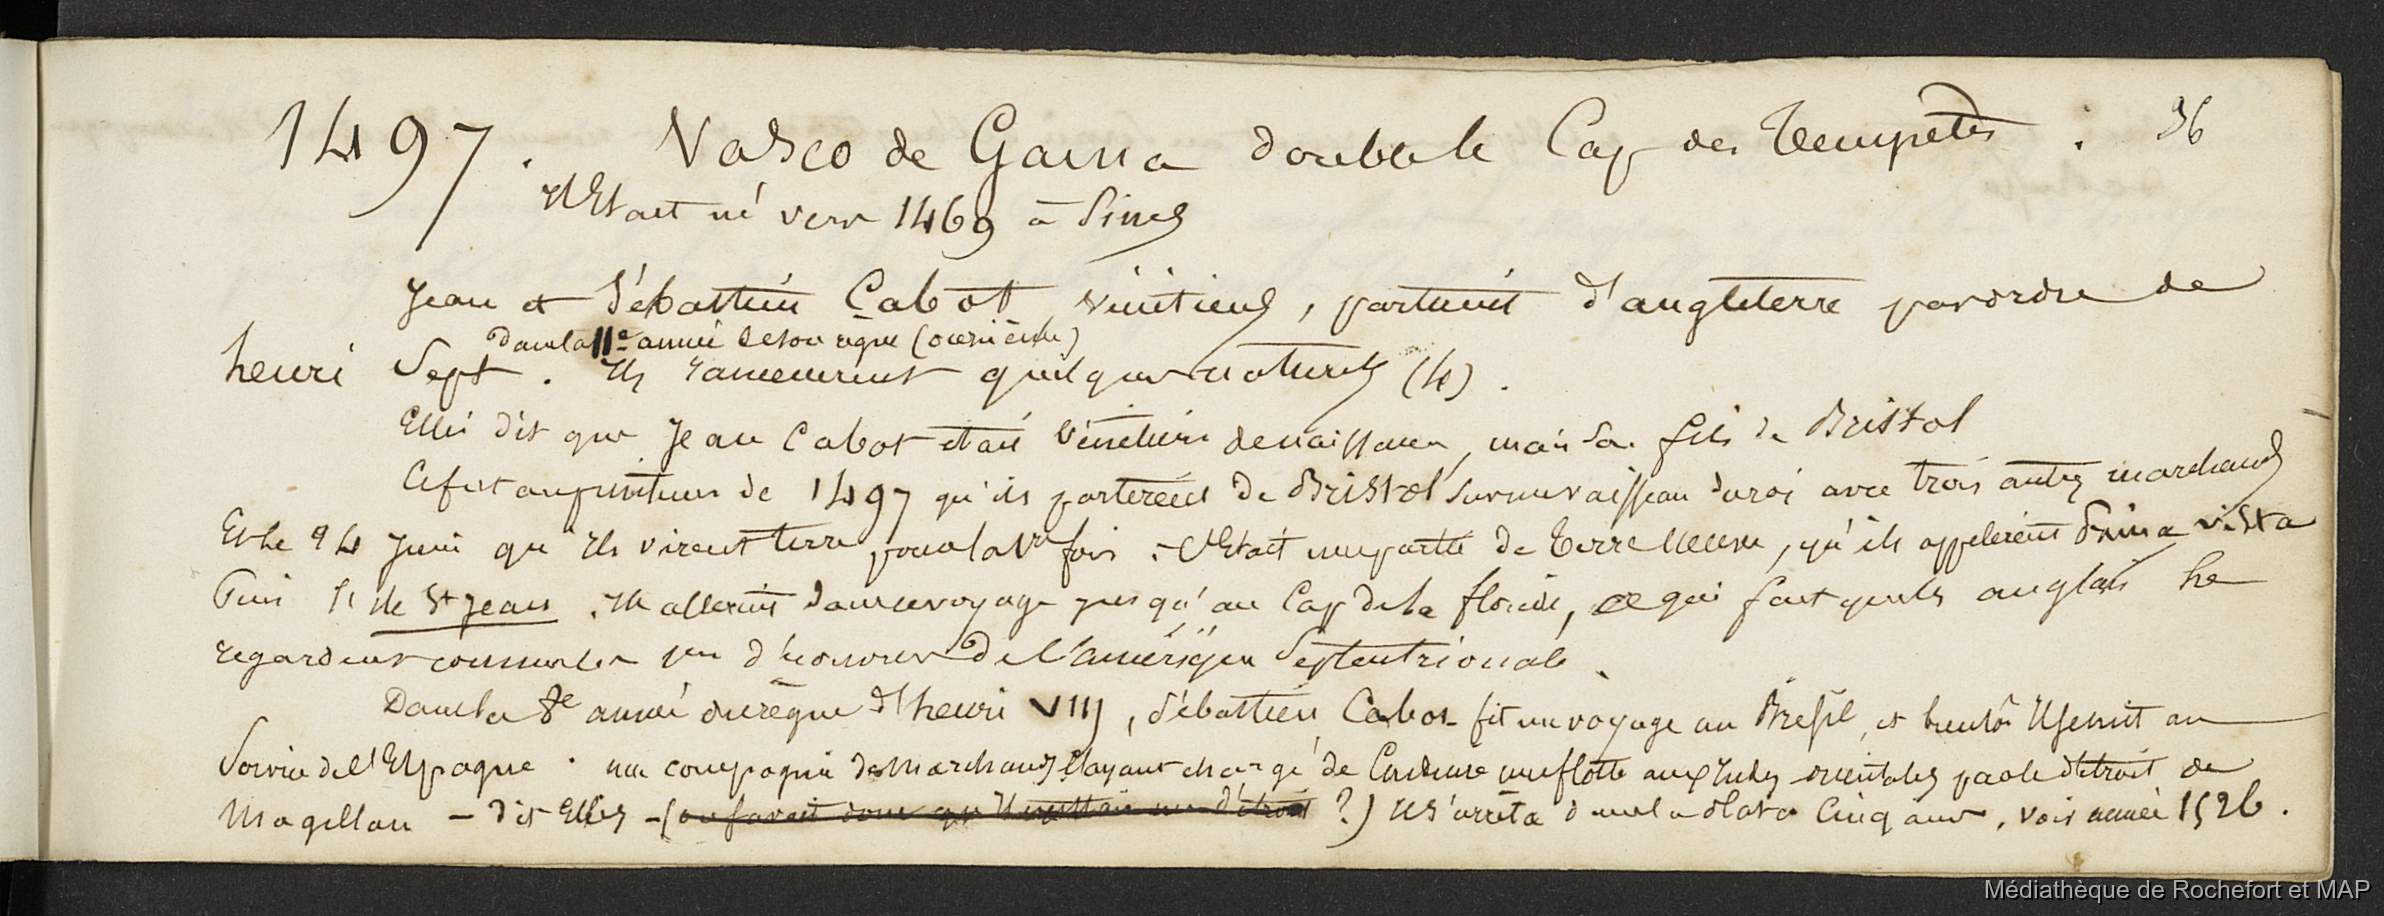 1497. Vasco de Gama double le Cap des Tempêtes : 36
Il Etait né vers 1469 à Sines
Jean et Sébastien Cabot, Vénitiens, partirent d'angleterre par ordre de
dans la 11e année de son règne (onzième)
henri Sept. Ils ramenerent quelques naturels (4).
Ellis dit que Jean Cabot était Vénitien de naissance, mais Son fils de Bristol
Ce fut au printems de 1497 qu'ils partirent de Bristol sur un vaisseau du roi avec trois autres marchands
Et le 24 Juin qu'ils virent terre pour la 1re fois. C'Etait une partie de Terre Neuve, qu'ils appelèrent Prima vista
Puis l'ile St Jean. Ils allerent dans ce voyage jusqu'au Cap de la floride, ce qui fait que les anglais le
regardent comme les decouvreurs De l'amérique Septentrionale.
Dans la 8e année du règne d'henri VIII, Sébastien Cabot fit un voyage au Brésil, et bientôt Il se mit au
Service de l'Espagne. une compagnie de Marchands l'ayant chargé de Conduire une flotte aux Indes orientales par le détroit de
Magellan – dit Ellis – (on savait donc qu'il existait un détroit ?) Il s'arrêta dans la plata Cinq ans, voir année 1526.
Médiathèque de Rochefort et MAP